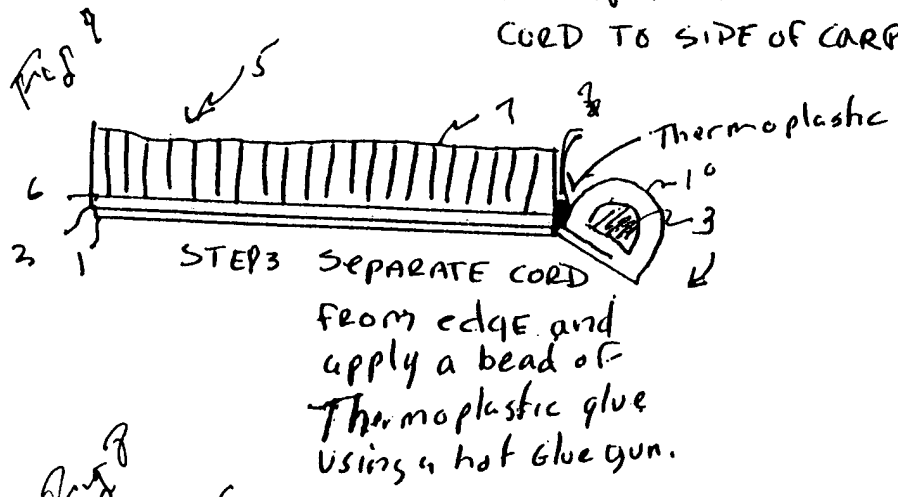 CORD TO SIDE OF CARP
5
7
Thermoplastic
10
6
3
3
1
STEP3 SEPARATE CORD
from edge and
apply a bead of
Thermoplastic glue
using a hot Glue gun.